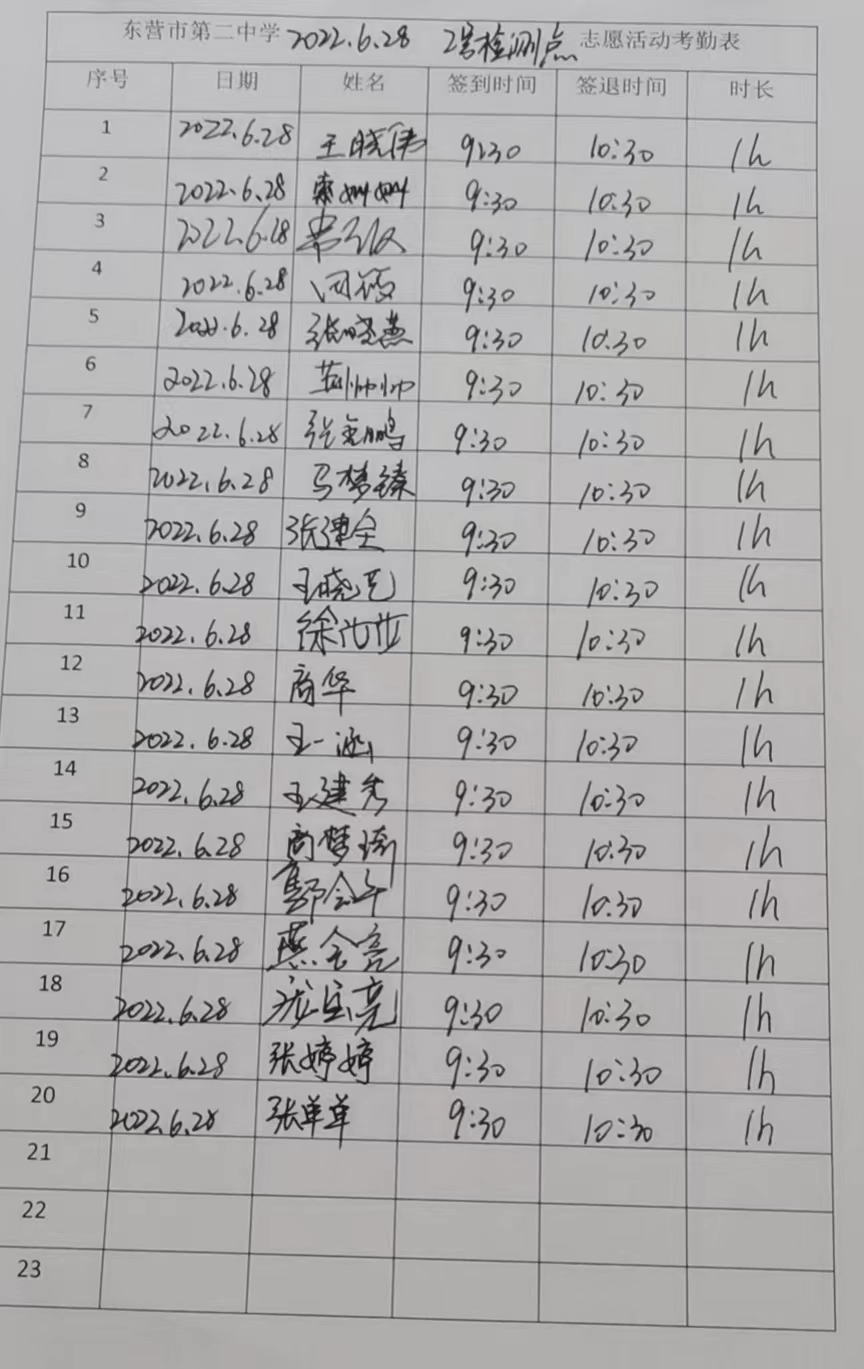 东营市第二中学 2022.6.28 2号检测点 志愿活动考勤表
序号 日期 姓名 签到时间 签退时间 时长
1 2022.6.28 王晓伟 9:30 10:30 1h
2 2022.6.28 索姗姗 9:30 10:30 1h
3 2022.6.28 9:30 10:30 1h
4 2022.6.28 9:30 10:30 1h
5 2022.6.28 张晓燕 9:30 10:30 1h
6 2022.6.28 9:30 10:30 1h
7 2022.6.28 9:30 10:30 1h
8 2022.6.28 马梦臻 9:30 10:30 1h
9 2022.6.28 张建全 9:30 10:30 1h
10 2022.6.28 9:30 10:30 1h
11 2022.6.28 9:30 10:30 1h
12 2022.6.28 商华 9:30 10:30 1h
13 2022.6.28 王一涵 9:30 10:30 1h
14 2022.6.28 王建秀 9:30 10:30 1h
15 2022.6.28 商梦琦 9:30 10:30 1h
16 2022.6.28 9:30 10:30 1h
17 2022.6.28 燕全亮 9:30 10:30 1h
18 2022.6.28 9:30 10:30 1h
19 2022.6.28 张婷婷 9:30 10:30 1h
20 2022.6.28 张单单 9:30 10:30 1h
21
22
23